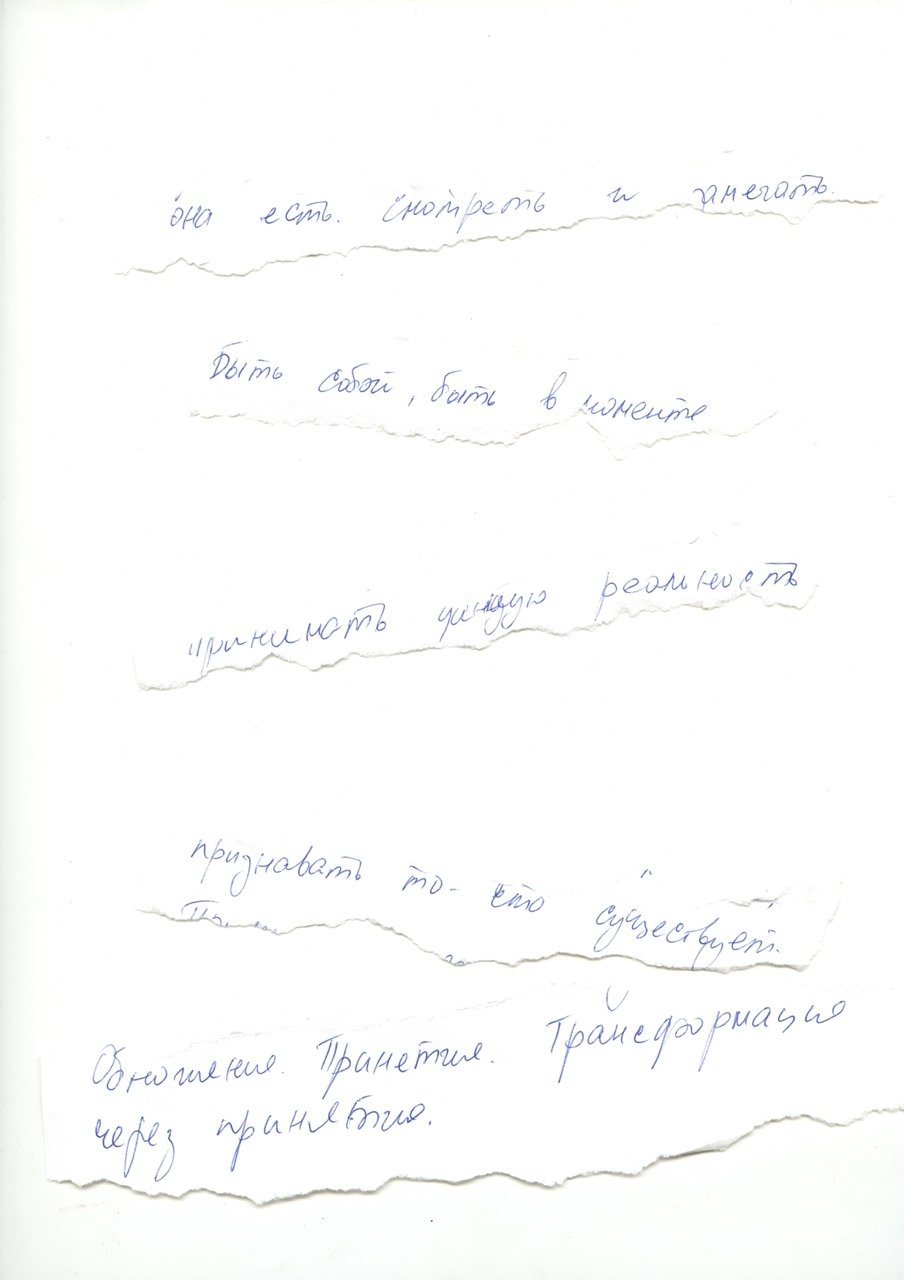 она есть. смотреть и замечать.
Быть собой, быть в моменте
принимать реальность
признавать то- что существует.
Обношения. Принетия. Трансформация
через принятия.